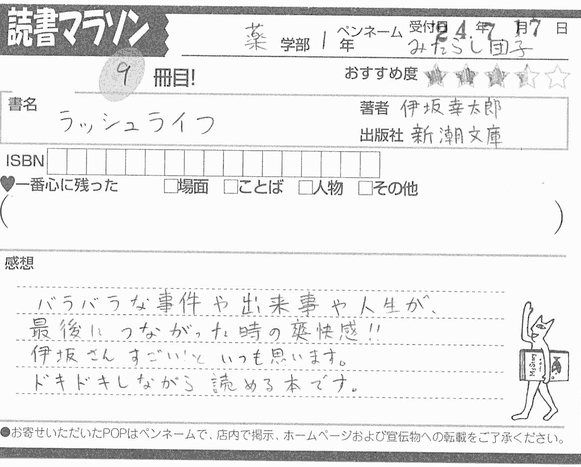 読書マラソン
薬 学部 1 年 ペンネーム みたらし団子
受付日 24年 7月 17日
9 冊目!
おすすめ度 ★★★☆
書名 ラッシュライフ
著者 伊坂幸太郎
出版社 新潮文庫
ISBN
♥一番心に残った □場面 □ことば □人物 □その他
( )
感想
バラバラな事件や出来事や人生が、
最後につながった時の爽快感!!
伊坂さんすごい!といつも思います。
ドキドキしながら読める本です。
●お寄せいただいたPOPはペンネームで、店内で掲示、ホームページおよび宣伝物への転載をご了承ください。